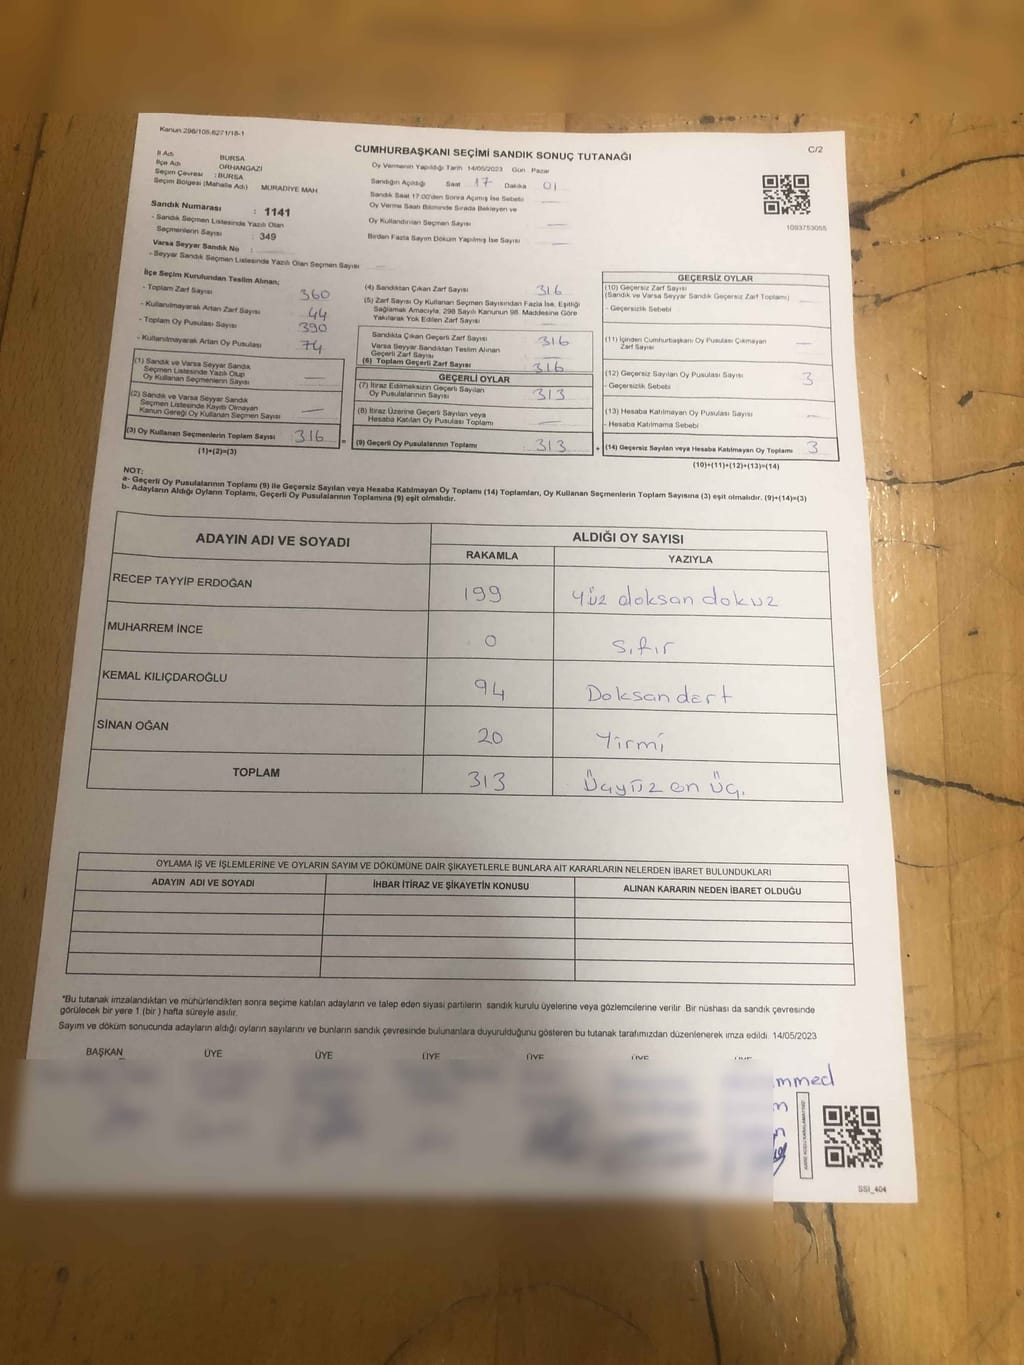 Kanun:298/105.6271/18-1
C/2
CUMHURBAŞKANI SEÇİMİ SANDIK SONUÇ TUTANAĞI
İl Adı BURSA
İlçe Adı ORHANGAZİ
Seçim Çevresi : BURSA
Seçim Bölgesi (Mahalle Adı) MURADİYE MAH
Oy Vermenin Yapıldığı Tarih 14/05/2023 Gün Pazar
Sandığın Açıldığı Saat 17 Dakika 01
Sandık Saat 17:00'den Sonra Açılmış İse Sebebi
Oy Verme Saati Bitiminde Sırada Bekleyen ve
Oy Kullandırılan Seçmen Sayısı
Birden Fazla Sayım Döküm Yapılmış İse Sayısı
1093753055
Sandık Numarası : 1141
- Sandık Seçmen Listesinde Yazılı Olan
Seçmenlerin Sayısı : 349
Varsa Seyyar Sandık No :
- Seyyar Sandık Seçmen Listesinde Yazılı Olan Seçmen Sayısı
İlçe Seçim Kurulundan Teslim Alınan;
- Toplam Zarf Sayısı 360
- Kullanılmayarak Artan Zarf Sayısı 44
- Toplam Oy Pusulası Sayısı 390
- Kullanılmayarak Artan Oy Pusulası 74
(1) Sandık ve Varsa Seyyar Sandık
Seçmen Listesinde Yazılı Olup
Oy Kullanan Seçmenlerin Sayısı —
(2) Sandık ve Varsa Seyyar Sandık
Seçmen Listesinde Kayıtlı Olmayan
Kanun Gereği Oy Kullanan Seçmen Sayısı —
(3) Oy Kullanan Seçmenlerin Toplam Sayısı 316
(1)+(2)=(3)
(4) Sandıktan Çıkan Zarf Sayısı 316
(5) Zarf Sayısı Oy Kullanan Seçmen Sayısından Fazla İse, Eşitliği
Sağlamak Amacıyla, 298 Sayılı Kanunun 98. Maddesine Göre
Yakılarak Yok Edilen Zarf Sayısı
Sandıkta Çıkan Geçerli Zarf Sayısı 316
Varsa Seyyar Sandıktan Teslim Alınan
Geçerli Zarf Sayısı
(6) Toplam Geçerli Zarf Sayısı 316
GEÇERLİ OYLAR
(7) İtiraz Edilmeksizin Geçerli Sayılan
Oy Pusulalarının Sayısı 313
(8) İtiraz Üzerine Geçerli Sayılan veya
Hesaba Katılan Oy Pusulası Toplamı —
= (9) Geçerli Oy Pusulalarının Toplamı 313
GEÇERSİZ OYLAR
(10) Geçersiz Zarf Sayısı
(Sandık ve Varsa Seyyar Sandık Geçersiz Zarf Toplamı)
- Geçersizlik Sebebi
(11) İçinden Cumhurbaşkanı Oy Pusulası Çıkmayan
Zarf Sayısı
(12) Geçersiz Sayılan Oy Pusulası Sayısı 3
- Geçersizlik Sebebi
(13) Hesaba Katılmayan Oy Pusulası Sayısı
- Hesaba Katılmama Sebebi
+ (14) Geçersiz Sayılan veya Hesaba Katılmayan Oy Toplamı 3
(10)+(11)+(12)+(13)=(14)
NOT:
a- Geçerli Oy Pusulalarının Toplamı (9) ile Geçersiz Sayılan veya Hesaba Katılmayan Oy Toplamı (14) Toplamları, Oy Kullanan Seçmenlerin Toplam Sayısına (3) eşit olmalıdır. (9)+(14)=(3)
b- Adayların Aldığı Oyların Toplamı, Geçerli Oy Pusulalarının Toplamına (9) eşit olmalıdır.
ADAYIN ADI VE SOYADI ALDIĞI OY SAYISI
RAKAMLA YAZIYLA
RECEP TAYYİP ERDOĞAN 199 Yüz doksan dokuz
MUHARREM İNCE 0 sıfır
KEMAL KILIÇDAROĞLU 94 Doksan dört
SİNAN OĞAN 20 Yirmi
TOPLAM 313 Üçyüz on üç.
OYLAMA İŞ VE İŞLEMLERİNE VE OYLARIN SAYIM VE DÖKÜMÜNE DAİR ŞİKAYETLERLE BUNLARA AİT KARARLARIN NELERDEN İBARET BULUNDUKLARI
ADAYIN ADI VE SOYADI İHBAR İTİRAZ VE ŞİKAYETİN KONUSU ALINAN KARARIN NEDEN İBARET OLDUĞU
*Bu tutanak imzalandıktan ve mühürlendikten sonra seçime katılan adayların ve talep eden siyasi partilerin sandık kurulu üyelerine veya gözlemcilerine verilir. Bir nüshası da sandık çevresinde
görülecek bir yere 1 (bir ) hafta süreyle asılır.
Sayım ve döküm sonucunda adayların aldığı oyların sayılarını ve bunların sandık çevresinde bulunanlara duyurulduğunu gösteren bu tutanak tarafımızdan düzenlenerek imza edildi. 14/05/2023
BAŞKAN ÜYE ÜYE ÜYE ÜYE ÜYE ÜYE
mmed
SSI_404